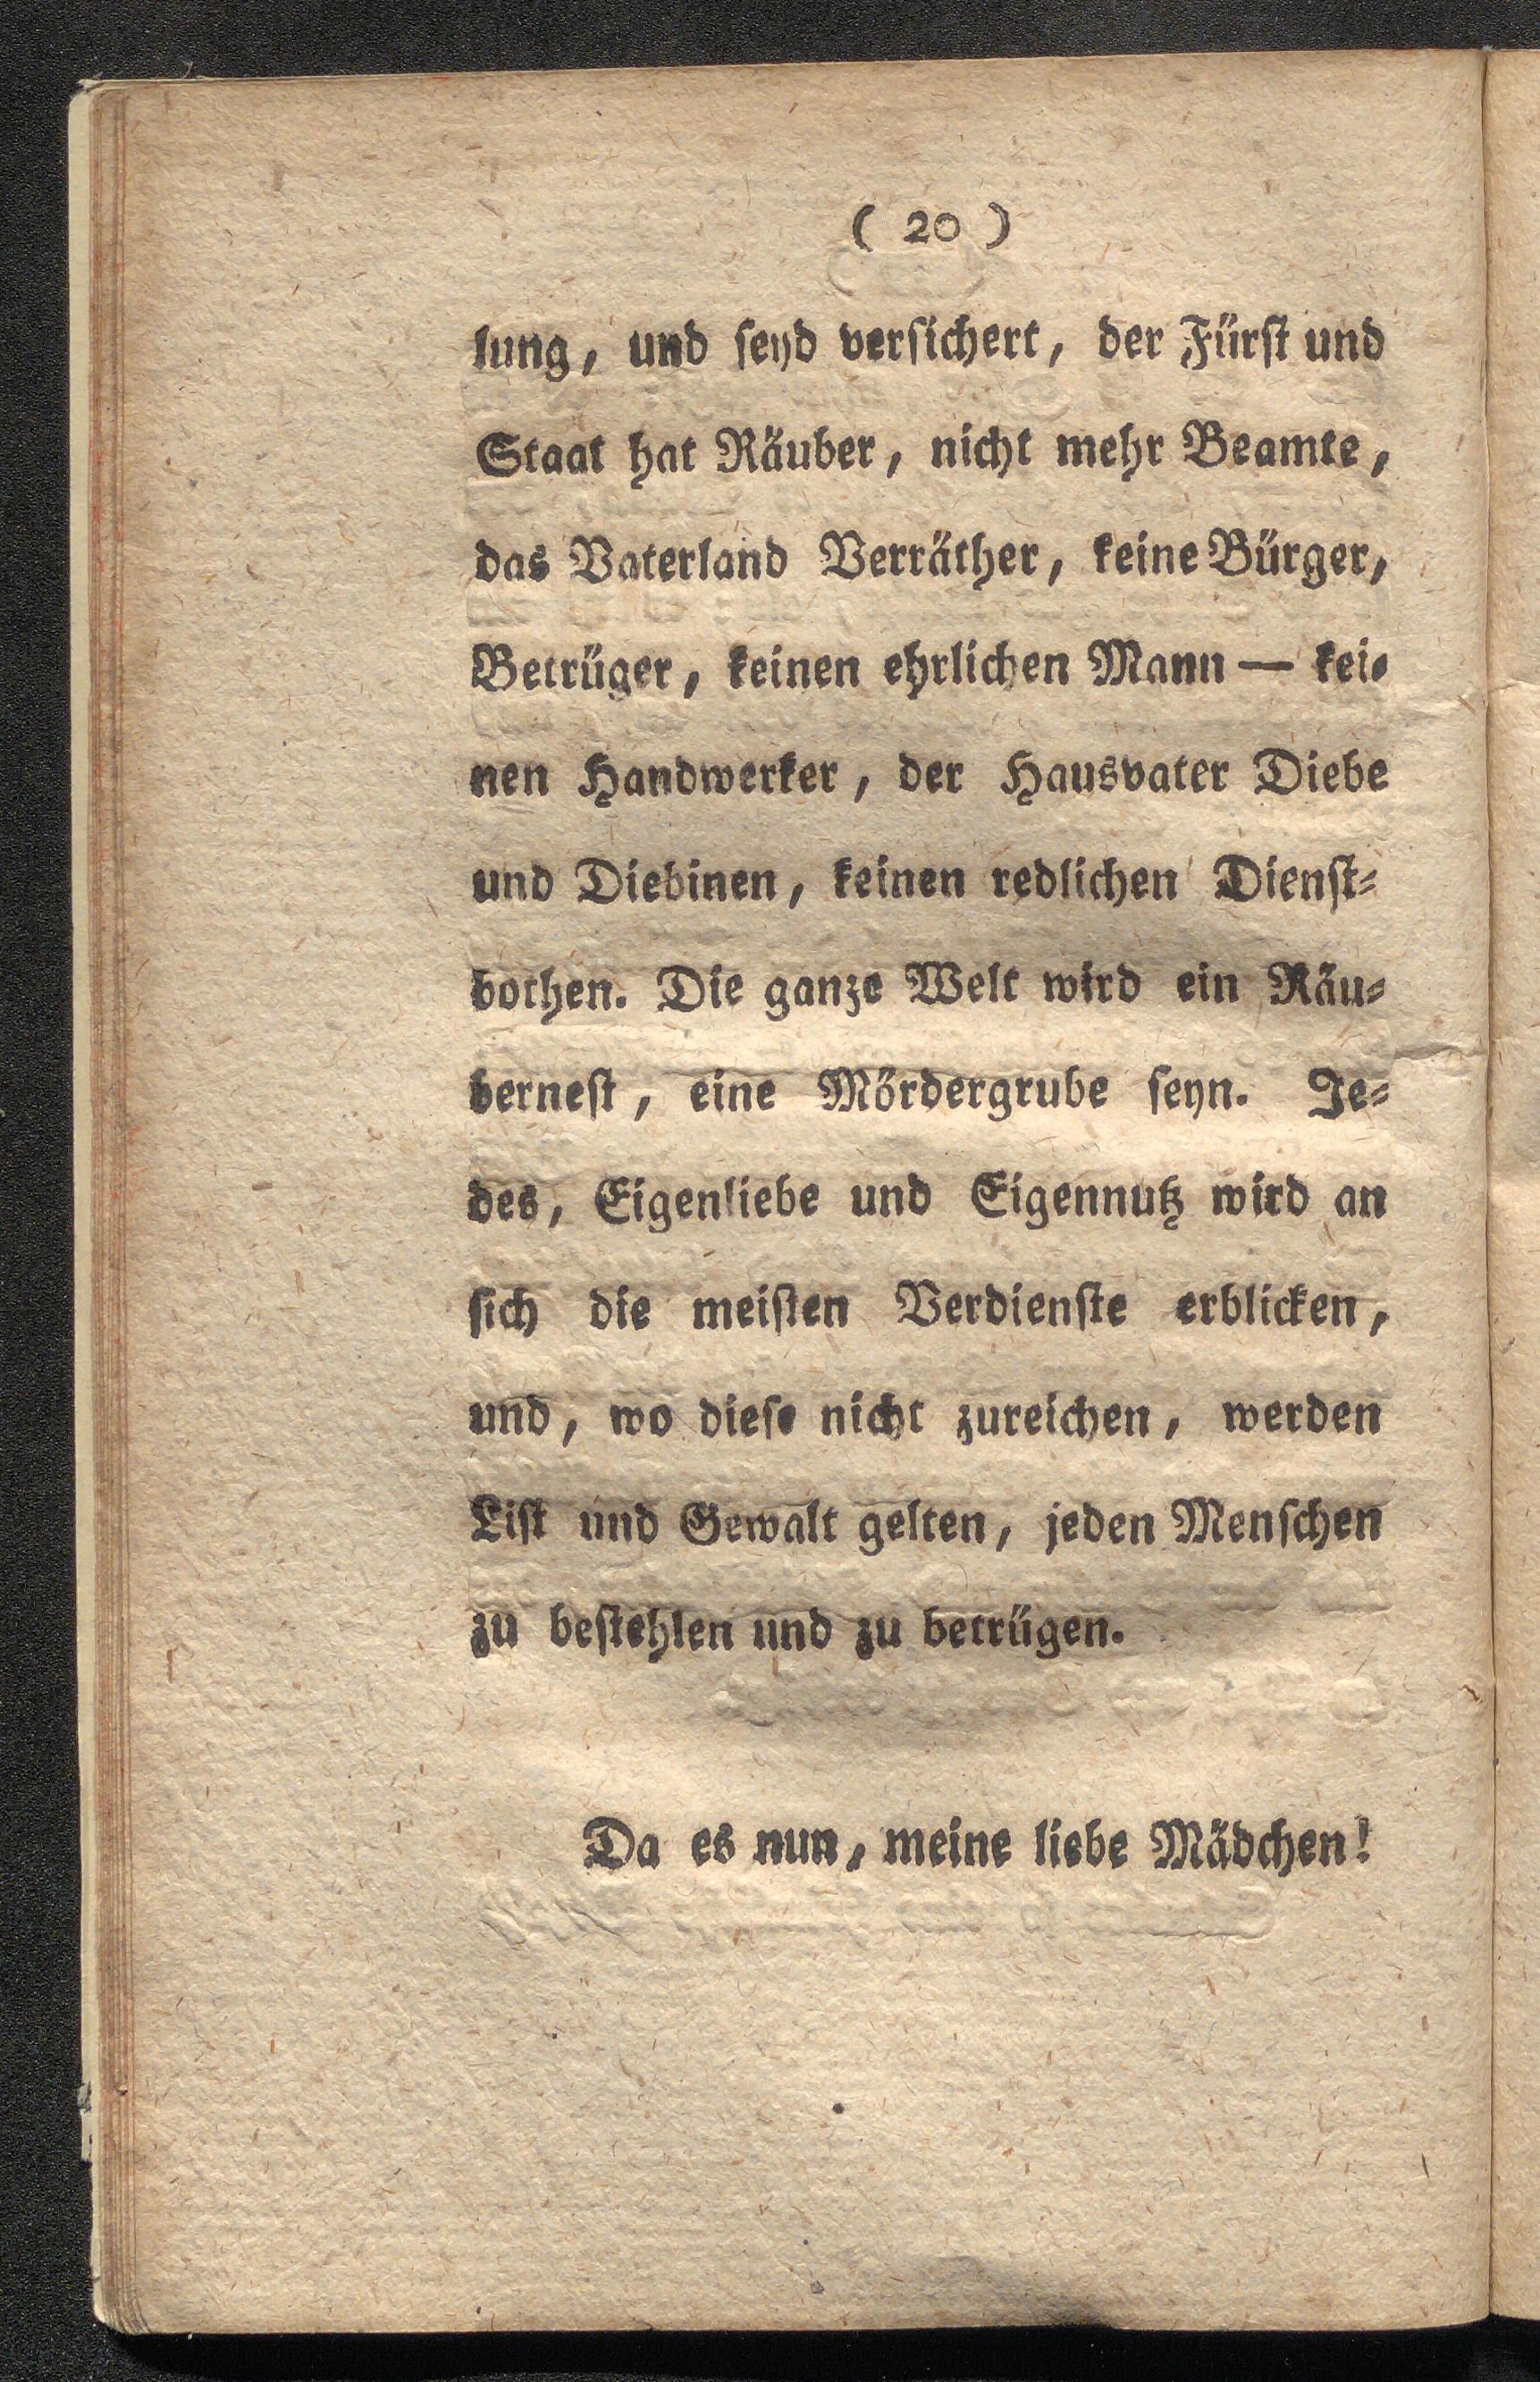 ( 20 )
lung, und seyd versichert, der Fürst und
Staat hat Räuber, nicht mehr Beamte,
das Vaterland Verräther, keine Bürger,
Betrüger, keinen ehrlichen Mann — kei-
nen Handwerker, der Hausvater Diebe
und Diebinen, keinen redlichen Dienst-
bothen. Die ganze Welt wird ein Räu-
bernest, eine Mördergrube seyn. Je-
des, Eigenliebe und Eigennutz wird an
sich die meisten Verdienste erblicken,
und, wo diese nicht zureichen, werden
List und Gewalt gelten, jeden Menschen
zu bestehlen und zu betrügen.
Da es nun, meine liebe Mädchen!